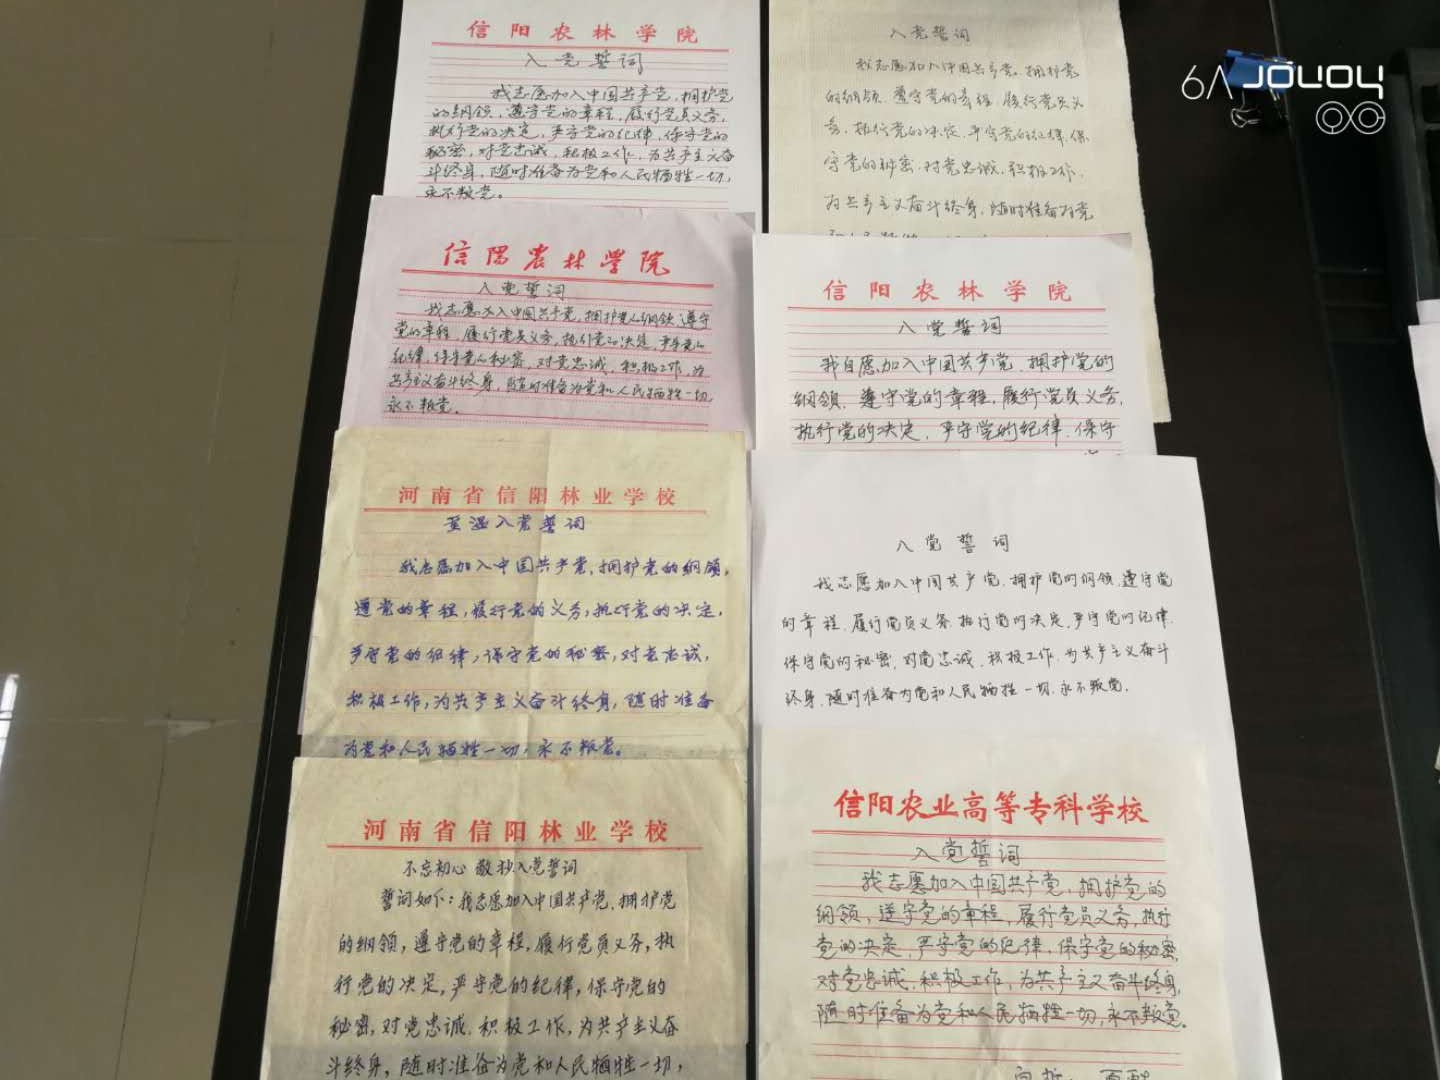 信阳农林学院
入党誓词
我志愿加入中国共产党，拥护党
的纲领，遵守党的章程，履行党员义务，
执行党的决定，严守党的纪律，保守党的
秘密，对党忠诚，积极工作，为共产主义奋
斗终身，随时准备为党和人民牺牲一切，
永不叛党。
信阳农林学院
入党誓词
我志愿加入中国共产党，拥护党的纲领，遵守
党的章程，履行党员义务，执行党的决定，严守党的
纪律，保守党的秘密，对党忠诚，积极工作，为
共产主义奋斗终身，随时准备为党和人民牺牲一切，
永不叛党。
河南省信阳林业学校
重温入党誓词
我志愿加入中国共产党，拥护党的纲领，
遵党的章程，履行党的义务，执行党的决定，
严守党的纪律，保守党的秘密，对党忠诚，
积极工作，为共产主义奋斗终身，随时准备
为党和人民牺牲一切，永不叛党。
河南省信阳林业学校
不忘初心 敬抄入党誓词
誓词如下：我志愿加入中国共产党，拥护党
的纲领，遵守党的章程，履行党员义务，执
行党的决定，严守党的纪律，保守党的
秘密，对党忠诚，积极工作，为共产主义奋
斗终身，随时准备为党和人民牺牲一切，
入党誓词
我志愿加入中国共产党，拥护党
的纲领，遵守党的章程，履行党员义
务，执行党的决定，严守党的纪律，保
守党的秘密，对党忠诚，积极工作，
为共产主义奋斗终身，随时准备为党
信阳农林学院
入党誓词
我自愿加入中国共产党，拥护党的
纲领，遵守党的章程，履行党员义务，
执行党的决定，严守党的纪律，保守
入党誓词
我志愿加入中国共产党，拥护党的纲领，遵守党
的章程，履行党员义务，执行党的决定，严守党的纪律，
保守党的秘密，对党忠诚，积极工作，为共产主义奋斗
终身，随时准备为党和人民牺牲一切，永不叛党。
信阳农业高等专科学校
入党誓词
我志愿加入中国共产党，拥护党的
纲领，遵守党的章程，履行党员义务，执行
党的决定，严守党的纪律，保守党的秘密，
对党忠诚，积极工作，为共产主义奋斗终身，
随时准备为党和人民牺牲一切，永不叛党。